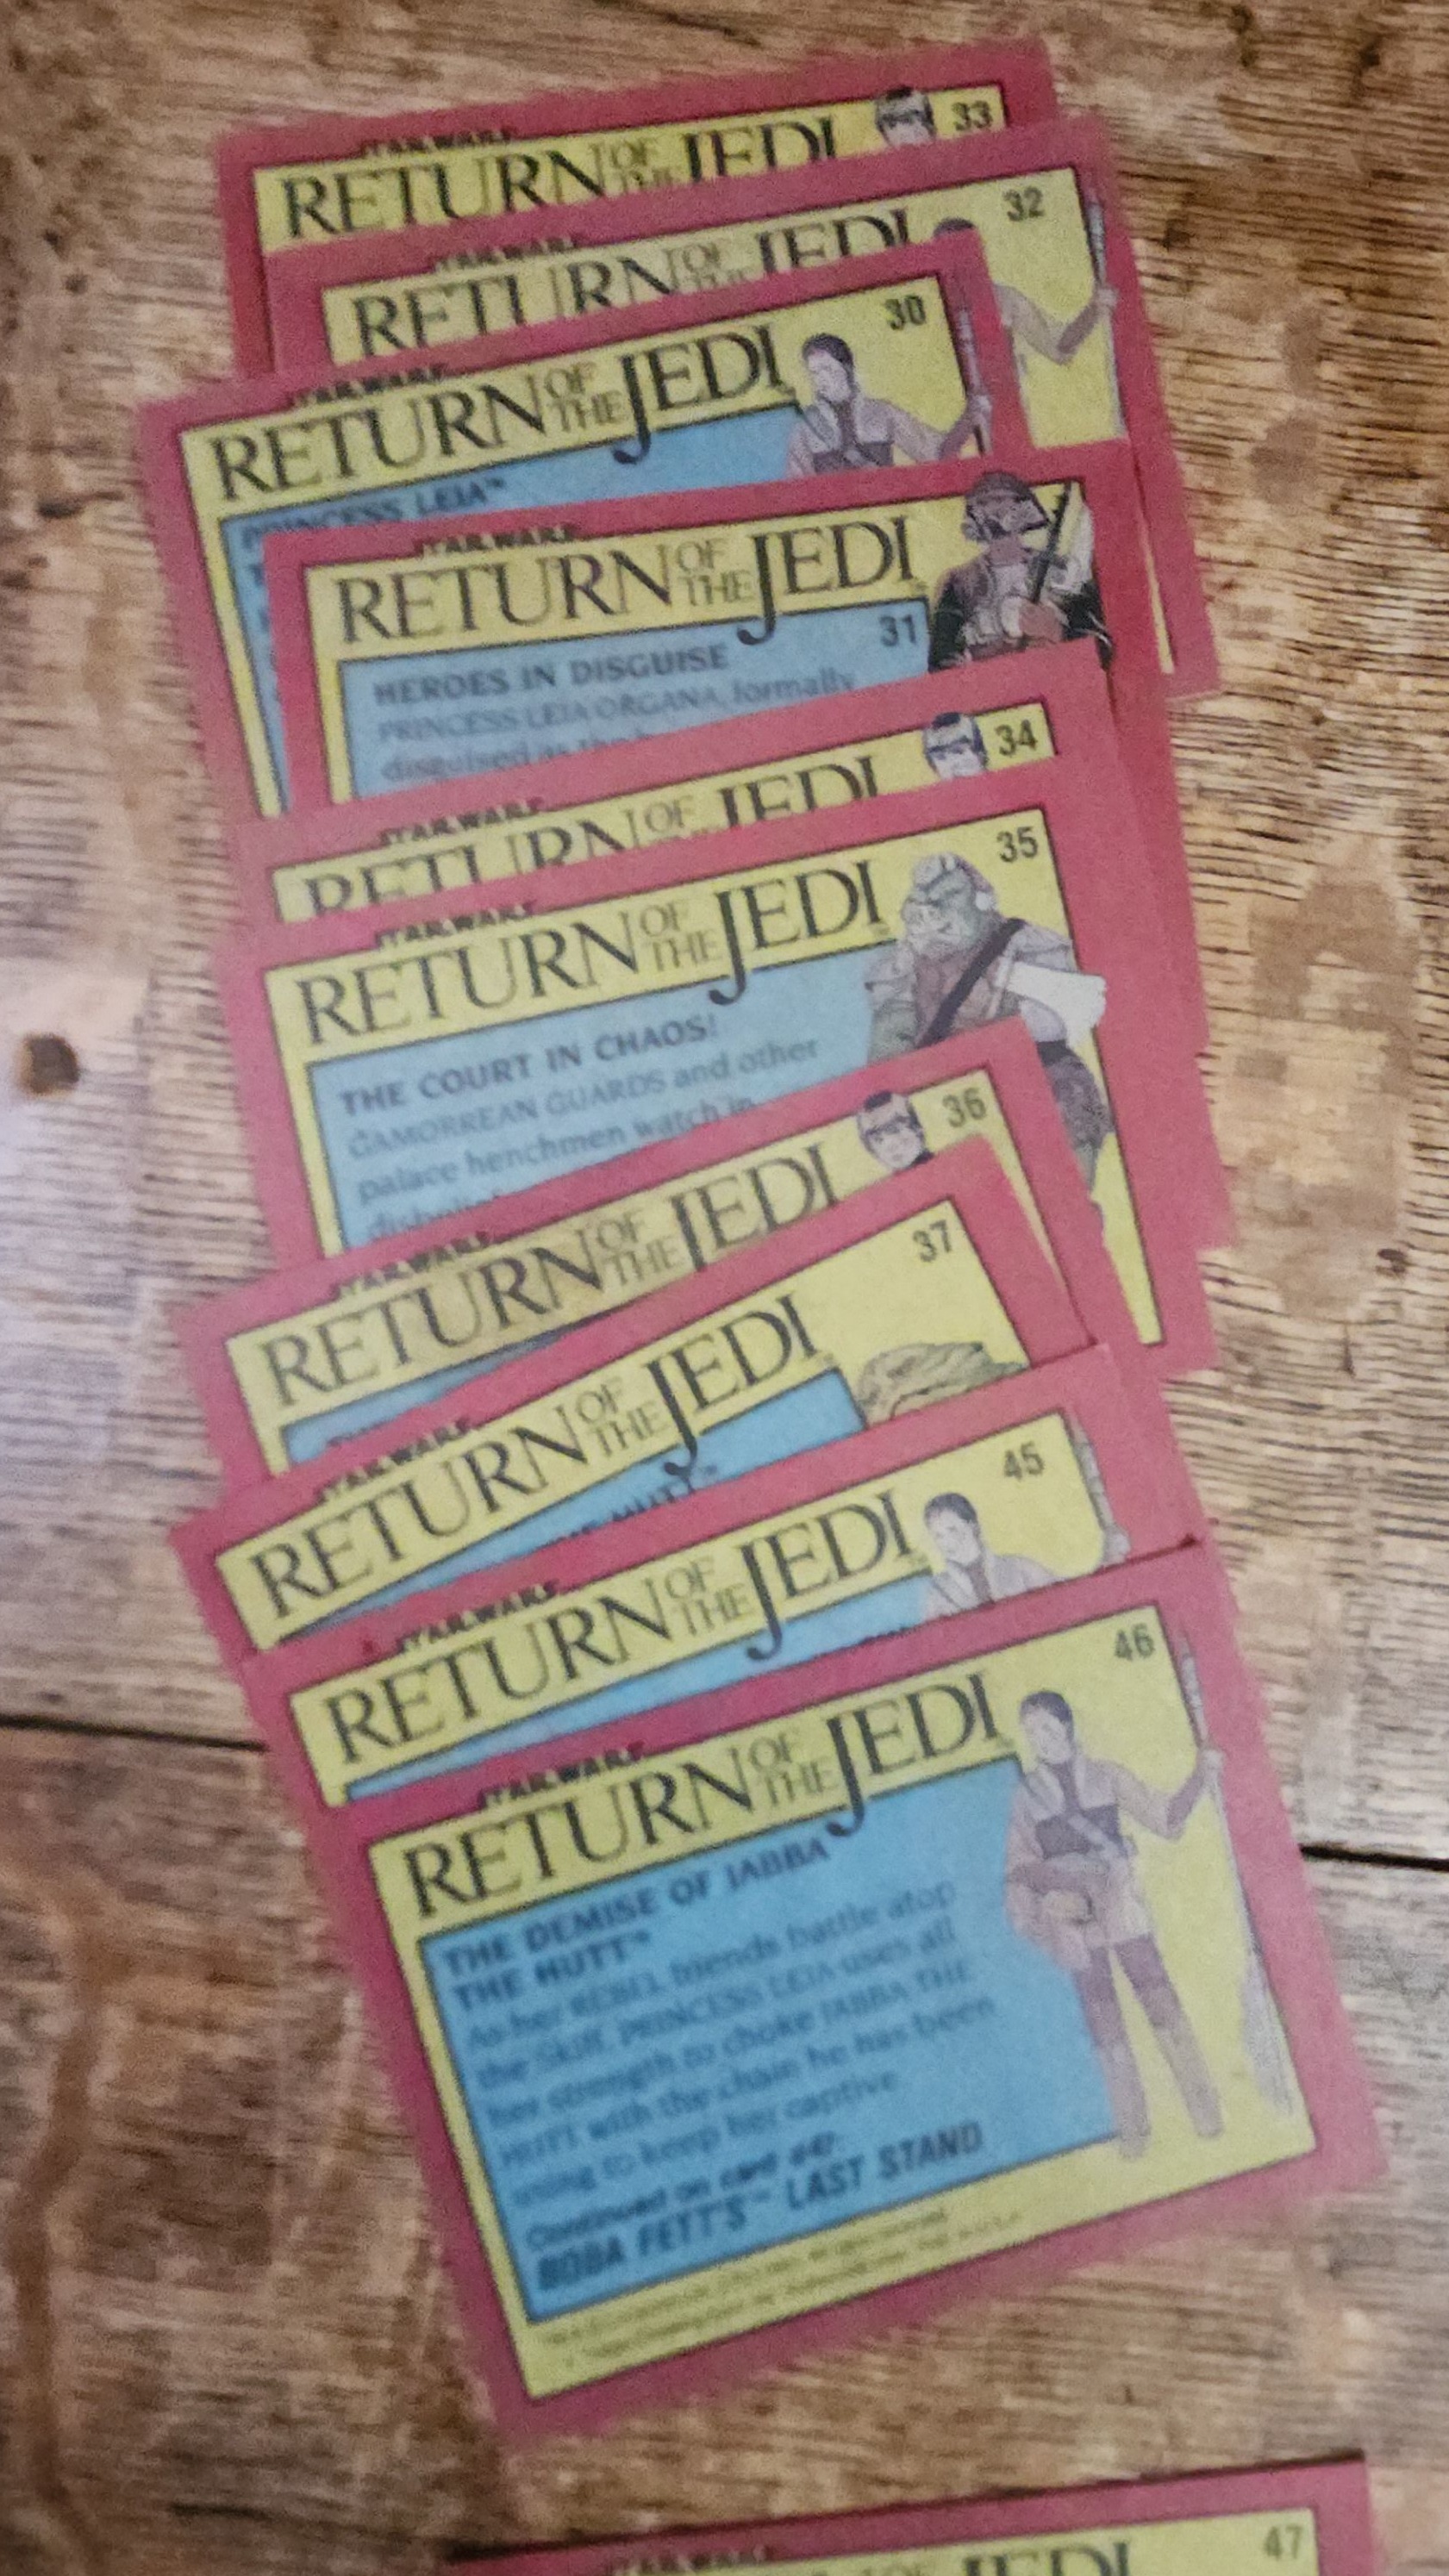 STAR WARS
RETURN OF THE JEDI
33
STAR WARS
RETURN OF THE JEDI
32
STAR WARS
RETURN OF THE JEDI
30
PRINCESS LEIA™
STAR WARS
RETURN OF THE JEDI
31
HEROES IN DISGUISE
PRINCESS LEIA ORGANA, formally
disguised as the
STAR WARS
RETURN OF JEDI
34
STAR WARS
RETURN OF THE JEDI
35
THE COURT IN CHAOS!
GAMORREAN GUARDS and other
palace henchmen watch in
STAR WARS
RETURN OF THE JEDI
36
STAR WARS
RETURN OF THE JEDI
37
HUTT™
STAR WARS
RETURN OF THE JEDI
45
STAR WARS
RETURN OF THE JEDI
46
THE DEMISE OF JABBA
THE HUTT™
As her REBEL friends battle atop
the Skiff, PRINCESS LEIA uses all
her strength to choke JABBA THE
HUTT with the chain he has been
using to keep her captive.
Continued on card #47:
BOBA FETT'S™ LAST STAND
STAR WARS
RETURN OF JEDI
47